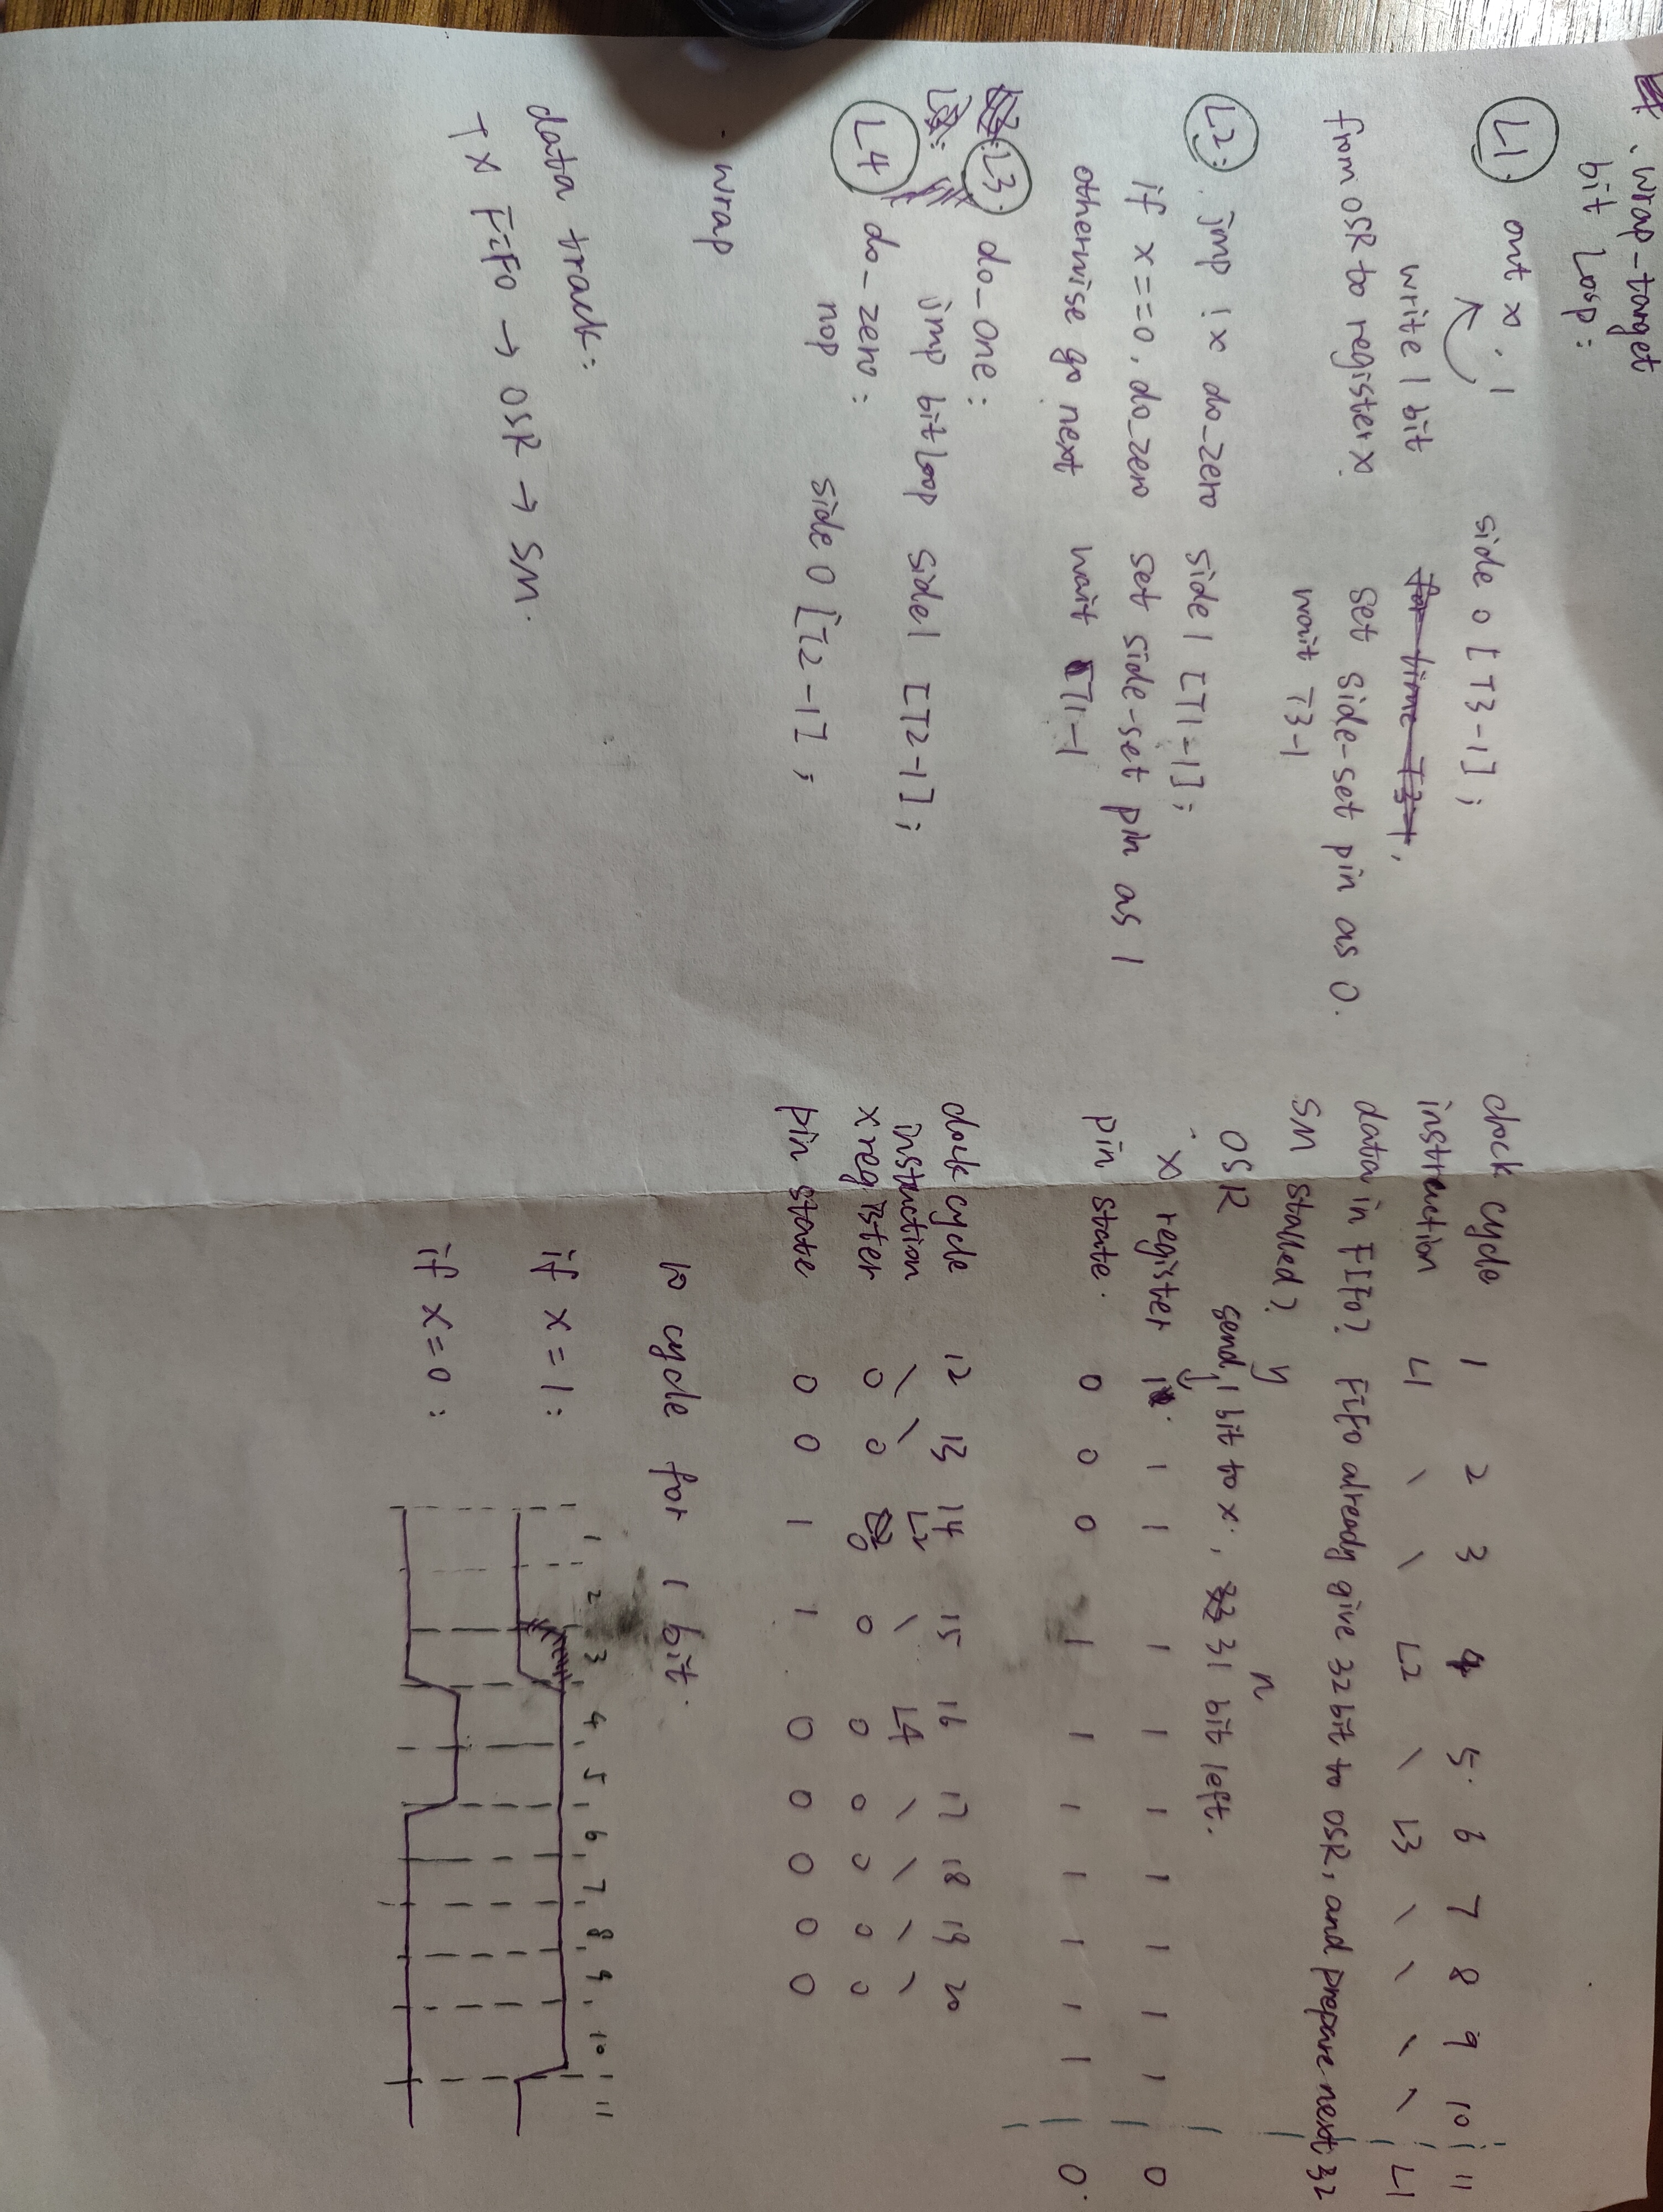 .wrap-target
bit loop:
L1. out x, 1 side 0 [T3-1];
write 1 bit for time T3-1,
from OSR to register x. set side-set pin as 0.
wait T3-1
L2: jmp !x do_zero side 1 [T1-1];
if x==0, do_zero set side-set pin as 1
otherwise go next wait T1-1
L3: do_one:
jmp bitloop side 1 [T2-1];
L4 do_zero:
nop side 0 [T2-1];
wrap
data track:
TX FIFO → OSR → SM.
clock cycle 1 2 3 4 5. 6 7 8 9 10 11
instruction L1 \ \ L2 \ L3 \ \ \ \ L1
data in FIFO? FIFO already give 32bit to OSR, and prepare next 32
SM stalled? y n
OSR send 1 bit to x. , 31 bit left.
x register 1 1 1 1 1 1 1 1 1 1 0
pin state. 0 0 0 1 1 1 1 1 1 1 0.
clock cycle 12 13 14 15 16 17 18 19 20
instruction \ \ L2 \ L4 \ \ \ \
x register 0 0 0 0 0 0 0 0 0
pin state 0 0 1 1 0 0 0 0 0
10 cycle for 1 bit.
1 2 3 4 5 6 7 8 9 10 11
if x=1:
if x=0: